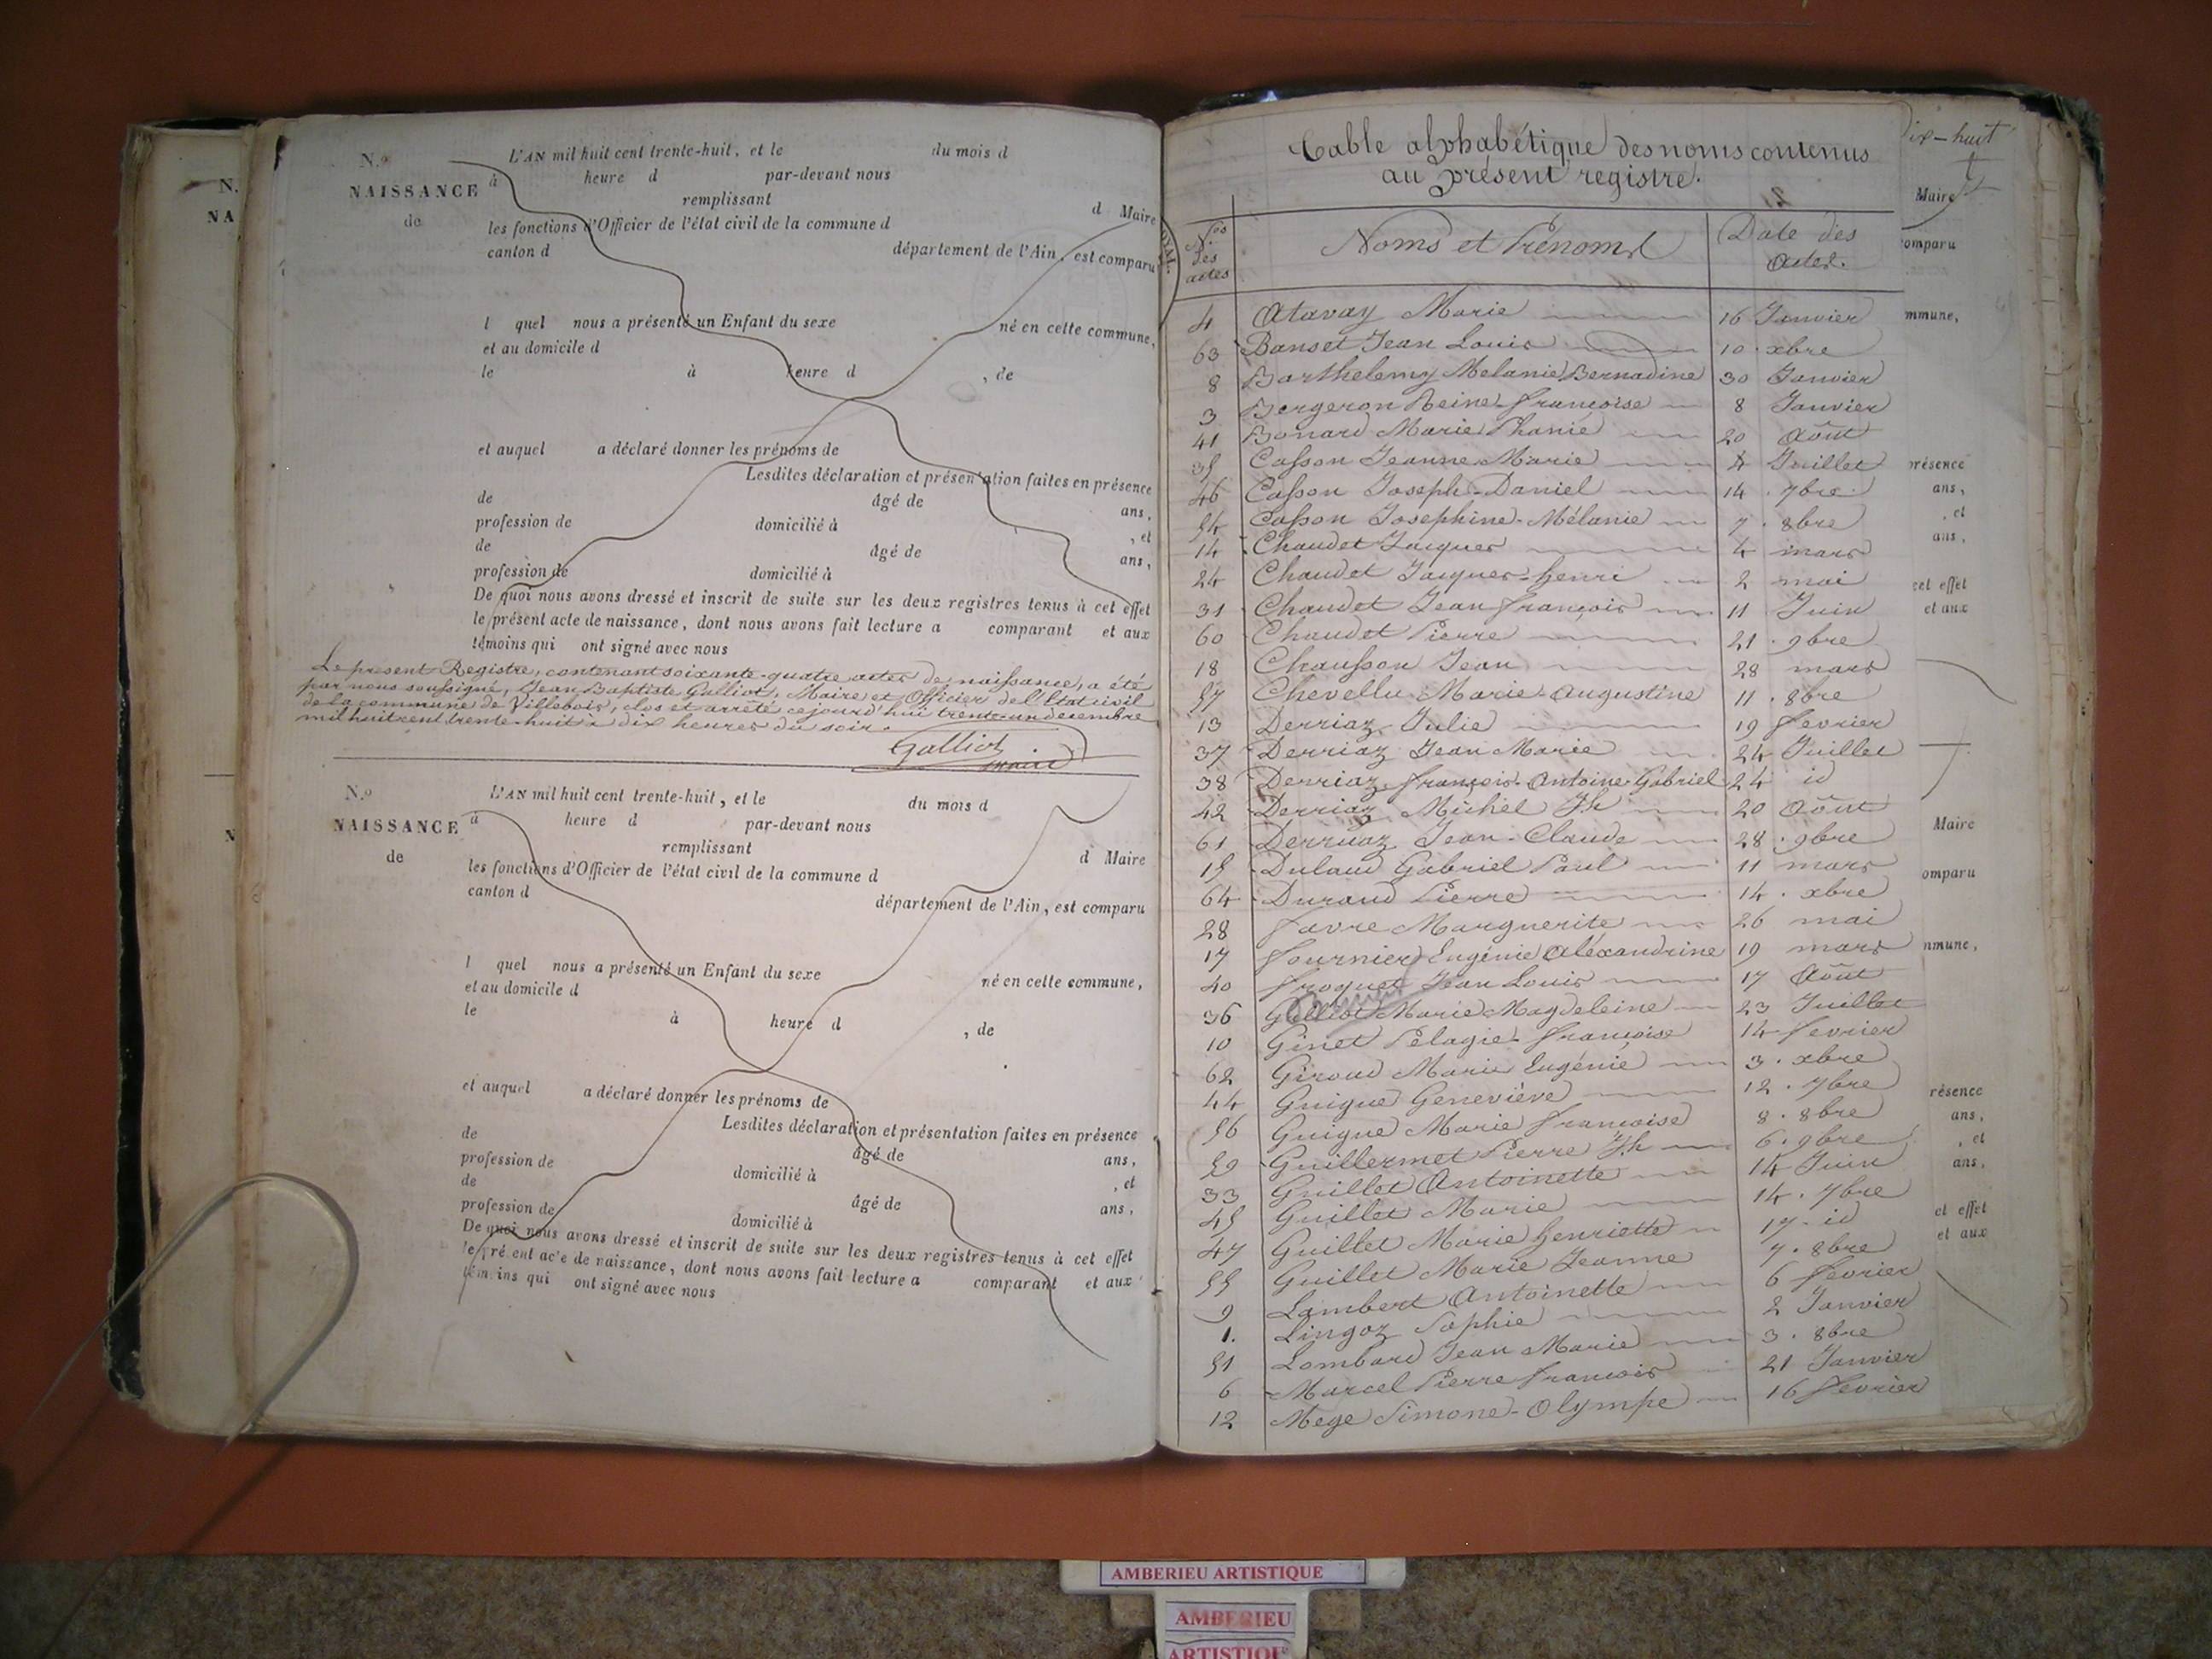 N.
NA
N
N.o
L'AN mil huit cent trente-huit, et le du mois d
NAISSANCE
de
à heure d par-devant nous
remplissant
d Maire
les fonctions d'Officier de l'état civil de la commune d
canton d département de l'Ain, est comparu
l quel nous a présenté un Enfant du sexe né en cette commune,
et au domicile d
le à heure d , de
et auquel a déclaré donner les prénoms de
Lesdites déclaration et présentation faites en présence
de âgé de ans,
profession de domicilié à , et
de âgé de ans,
profession de domicilié à
De quoi nous avons dressé et inscrit de suite sur les deux registres tenus à cet effet
le présent acte de naissance, dont nous avons fait lecture a comparant et aux
témoins qui ont signé avec nous
Le présent Registre, contenant soixante-quatre actes de naissance, a été
par nous soussigné, Jean Baptiste Galliot, Maire et Officier de l'Etat civil
de la commune de Villebois, clos et arrêté cejourd'hui trente-un decembre
mil huit cent trente-huit à dix heures du soir.
Galliot
maire
N.o
L'AN mil huit cent trente-huit, et le du mois d
NAISSANCE
de
à heure d par-devant nous
remplissant
d Maire
les fonctions d'Officier de l'état civil de la commune d
canton d département de l'Ain, est comparu
l quel nous a présenté un Enfant du sexe né en cette commune,
et au domicile d
le à heure d , de
et auquel a déclaré donner les prénoms de
Lesdites déclaration et présentation faites en présence
de âgé de ans,
profession de domicilié à , et
de âgé de ans,
profession de domicilié à
De quoi nous avons dressé et inscrit de suite sur les deux registres tenus à cet effet
le présent acte de naissance, dont nous avons fait lecture a comparant et aux
témoins qui ont signé avec nous
Table alphabétique des noms contenus
au présent registre.
Nos des actes Noms et Prénoms Date des actes.
4 Atavay Marie 16 Janvier
63 Banset Jean Louis 10 xbre
8 Barthelemy Melanie Bernadine 30 Janvier
3 Bergeron Reine-françoise 8 Janvier
41 Bonard Marie Phanie 20 Août
35 Casson Jeanne Marie 4 Juillet
46 Casson Joseph-Daniel 14 7bre
54 Casson Josephine-Mélanie 7 8bre
14 Chaudet Jacques 4 mars
24 Chaudet Jacques-henri 2 mai
31 Chaudet Jean-françois 11 Juin
60 Chaudet Pierre 21 9bre
18 Chausson Jean 28 mars
57 Chevellu Marie-Augustine 11 8bre
13 Derriaz Julie 19 fevrier
37 Derriaz Jean Marie 24 Juillet
38 Derriaz françois-Antoine-Gabriel 24 id
42 Derriaz Michel Jh 20 Août
61 Derriaz Jean-Claude 28 9bre
15 Dulaud Gabriel Paul 11 mars
64 Durand Pierre 14 xbre
28 favre Marguerite 26 mai
17 fournier Eugénie Aléxandrine 19 mars
40 froquet Jean Louis 17 Août
36 Galliot Marie Magdeleine 23 Juillet
10 Ginet Pélagie-françoise 14 fevrier
62 Giroud Marie Eugénie 3 xbre
44 Guigue Geneviève 12 7bre
56 Guigue Marie françoise 8 8bre
59 Guillermet Pierre Jh 6 9bre
33 Guillet Antoinette 14 Juin
45 Guillet Marie 14 7bre
47 Guillet Marie henriette 17 id
55 Guillet Marie Jeanne 7 8bre
9 Lambert Antoinette 6 fevrier
1. Lingoz Sophie 2 Janvier
51 Lombard Jean Marie 3 8bre
6 Marcel Pierre françois 21 Janvier
12 Mege Simone-Olympe 16 fevrier
ix-huit
Maire
omparu
mmune,
présence
ans,
, et
ans,
cet effet
et aux
Maire
omparu
nmune,
résence
ans,
, et
ans,
et effet
et aux
AMBERIEU ARTISTIQUE
AMBERIEU
ARTISTIQU